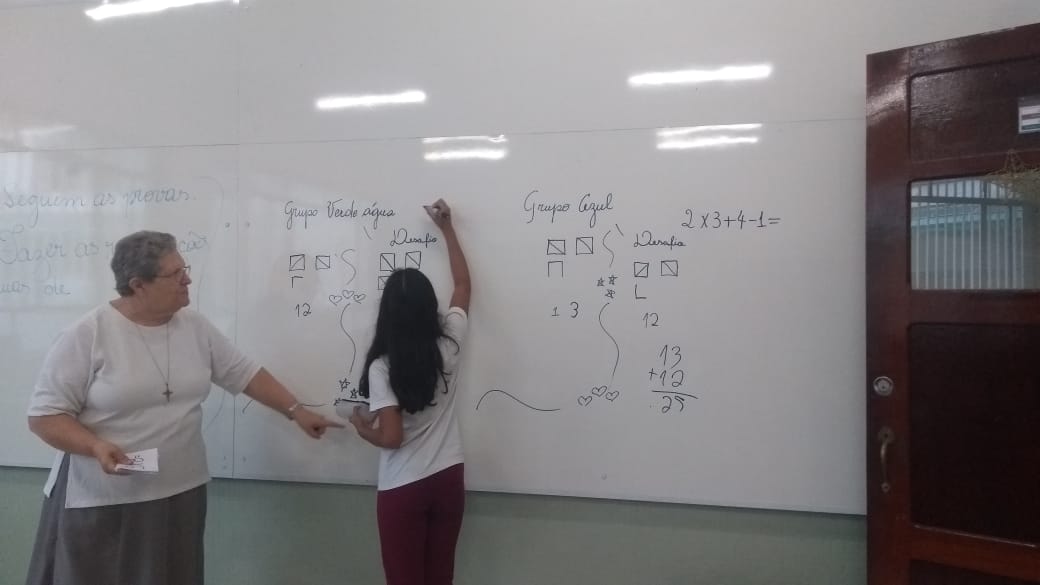 Seguem as provas.
Fazer as
Grupo Verde água
Desafio
12
Grupo Azul
2x3+4-1=
Desafio
13
12
13
+12
25